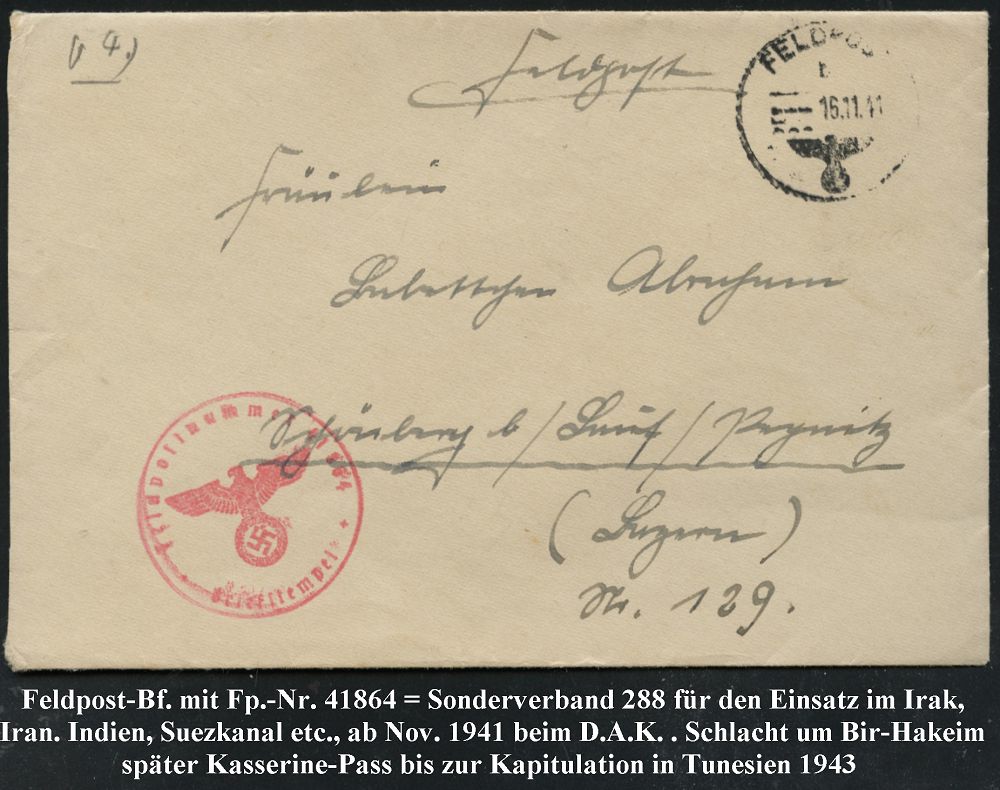 v 4.)
Feldpost
FELDPOST
b
16.11.41
Fräulein
Babettchen Abraham
Schönberg b/Lauf/Pegnitz
(Bayern)
Nr. 129.
Feldpostnummer 41864
Briefstempel
Feldpost-Bf. mit Fp.-Nr. 41864 = Sonderverband 288 für den Einsatz im Irak,
Iran. Indien, Suezkanal etc., ab Nov. 1941 beim D.A.K. . Schlacht um Bir-Hakeim
später Kasserine-Pass bis zur Kapitulation in Tunesien 1943